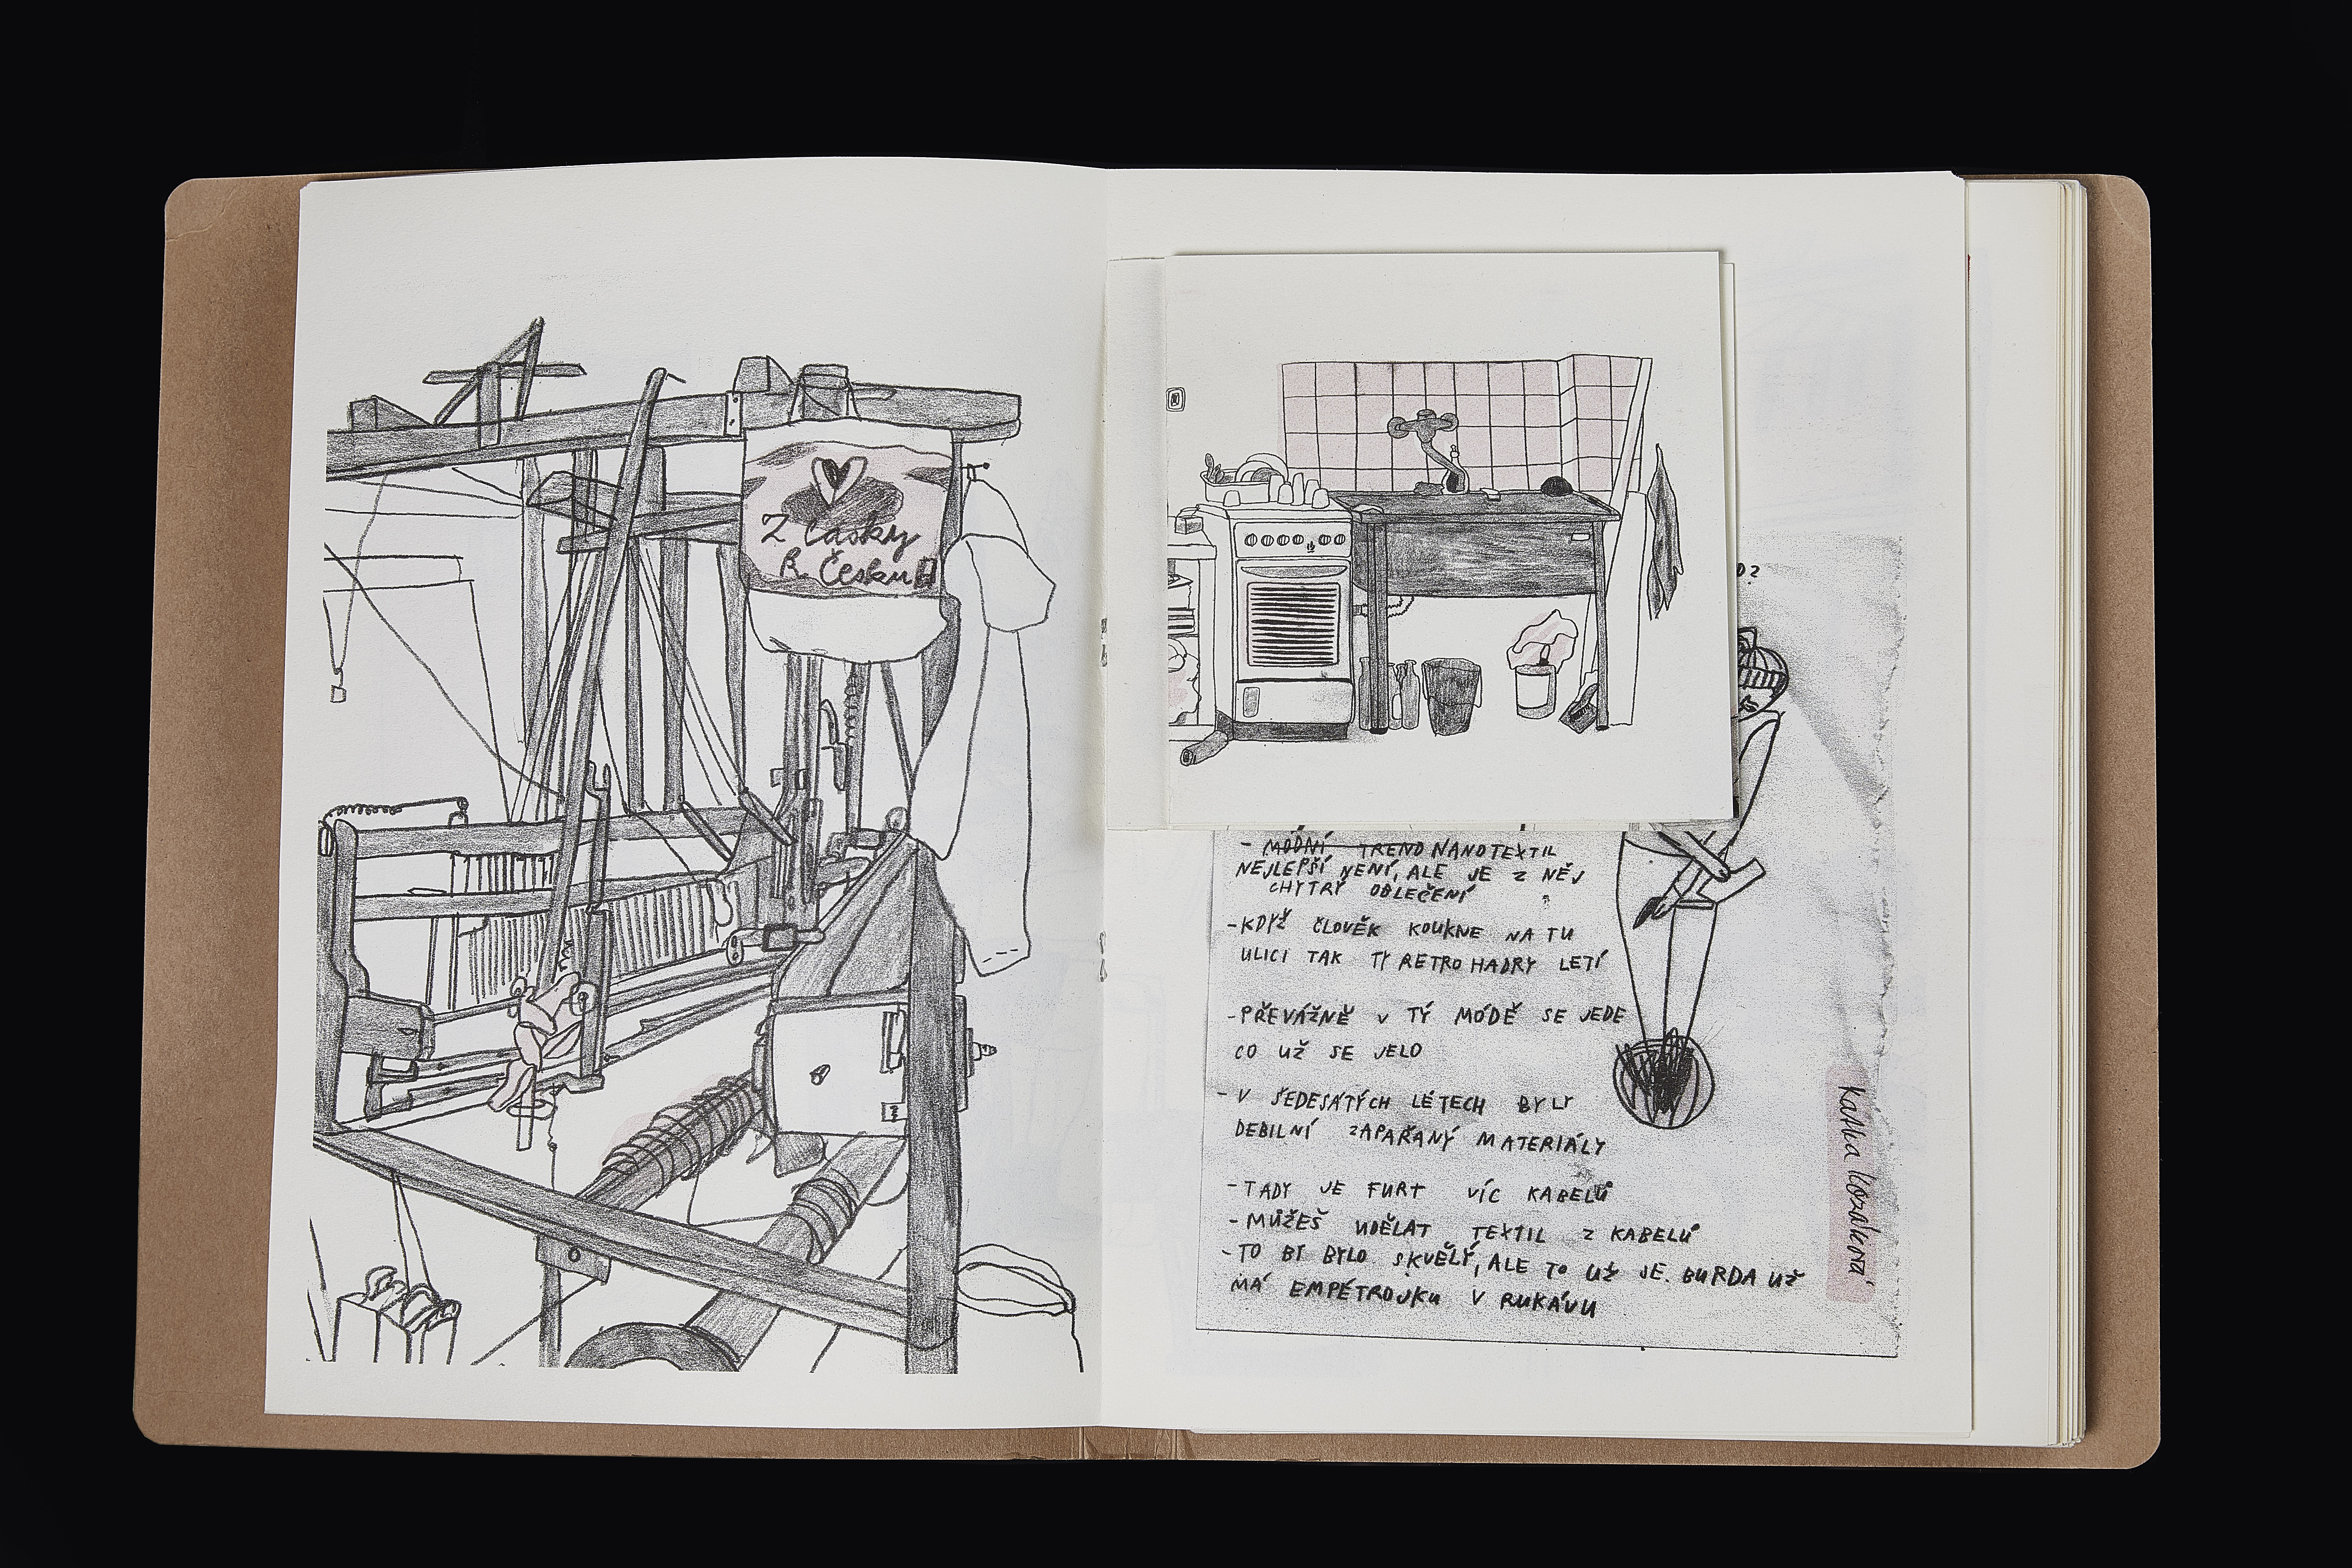 Z lásky
k Česku
- MÓDNÍ TREND NANOTEXTIL
NEJLEPŠÍ NENÍ, ALE JE Z NĚJ
CHYTRÝ OBLEČENÍ
- KDYŽ ČLOVĚK KOUKNE NA TU
ULICI TAK TY RETRO HADRY LETÍ
- PŘEVÁŽNĚ V TÝ MÓDĚ SE JEDE
CO UŽ SE JELO
- V ŠEDESÁTÝCH LÉTECH BYLY
DEBILNÍ ZAPAŘANÝ MATERIÁLY
- TADY JE FURT VÍC KABELŮ
- MŮŽEŠ UDĚLAT TEXTIL Z KABELŮ
- TO BY BYLO SKVĚLÝ, ALE TO UŽ JE. BURDA UŽ
MÁ EMPÉTROJKU V RUKÁVU
Katka Kozáková